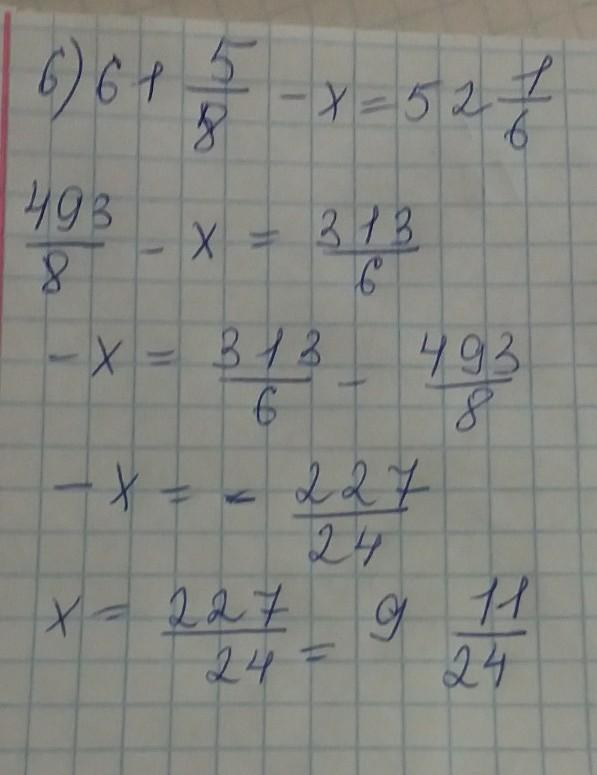 б) 61 5/8 - x = 52 1/6
493/8 - x = 313/6
- x = 313/6 - 493/8
- x = - 227/24
x = 227/24 = 9 11/24